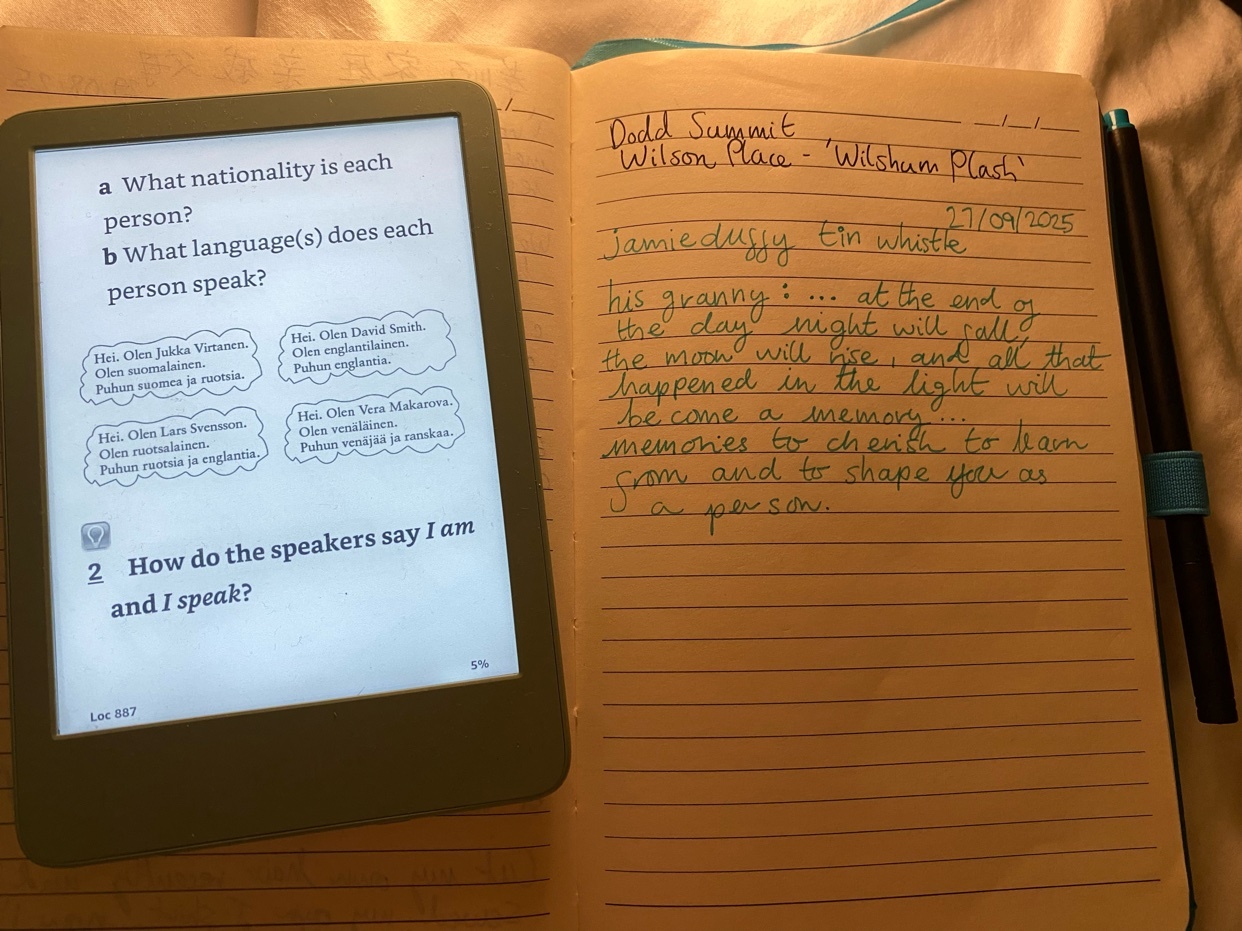 a What nationality is each
person?
b What language(s) does each
person speak?
Hei. Olen Jukka Virtanen.
Olen suomalainen.
Puhun suomea ja ruotsia.
Hei. Olen David Smith.
Olen englantilainen.
Puhun englantia.
Hei. Olen Lars Svensson.
Olen ruotsalainen.
Puhun ruotsia ja englantia.
Hei. Olen Vera Makarova.
Olen venäläinen.
Puhun venäjää ja ranskaa.
2 How do the speakers say I am
and I speak?
5%
Loc 887
Dodd Summit
Wilson Place - 'Wilsham Plash'
27/09/2025
jamieduffy tin whistle
his granny: ... at the end of
the day night will fall,
the moon will rise, and all that
happened in the light will
become a memory...
memories to cherish to learn
from and to shape you as
a person.